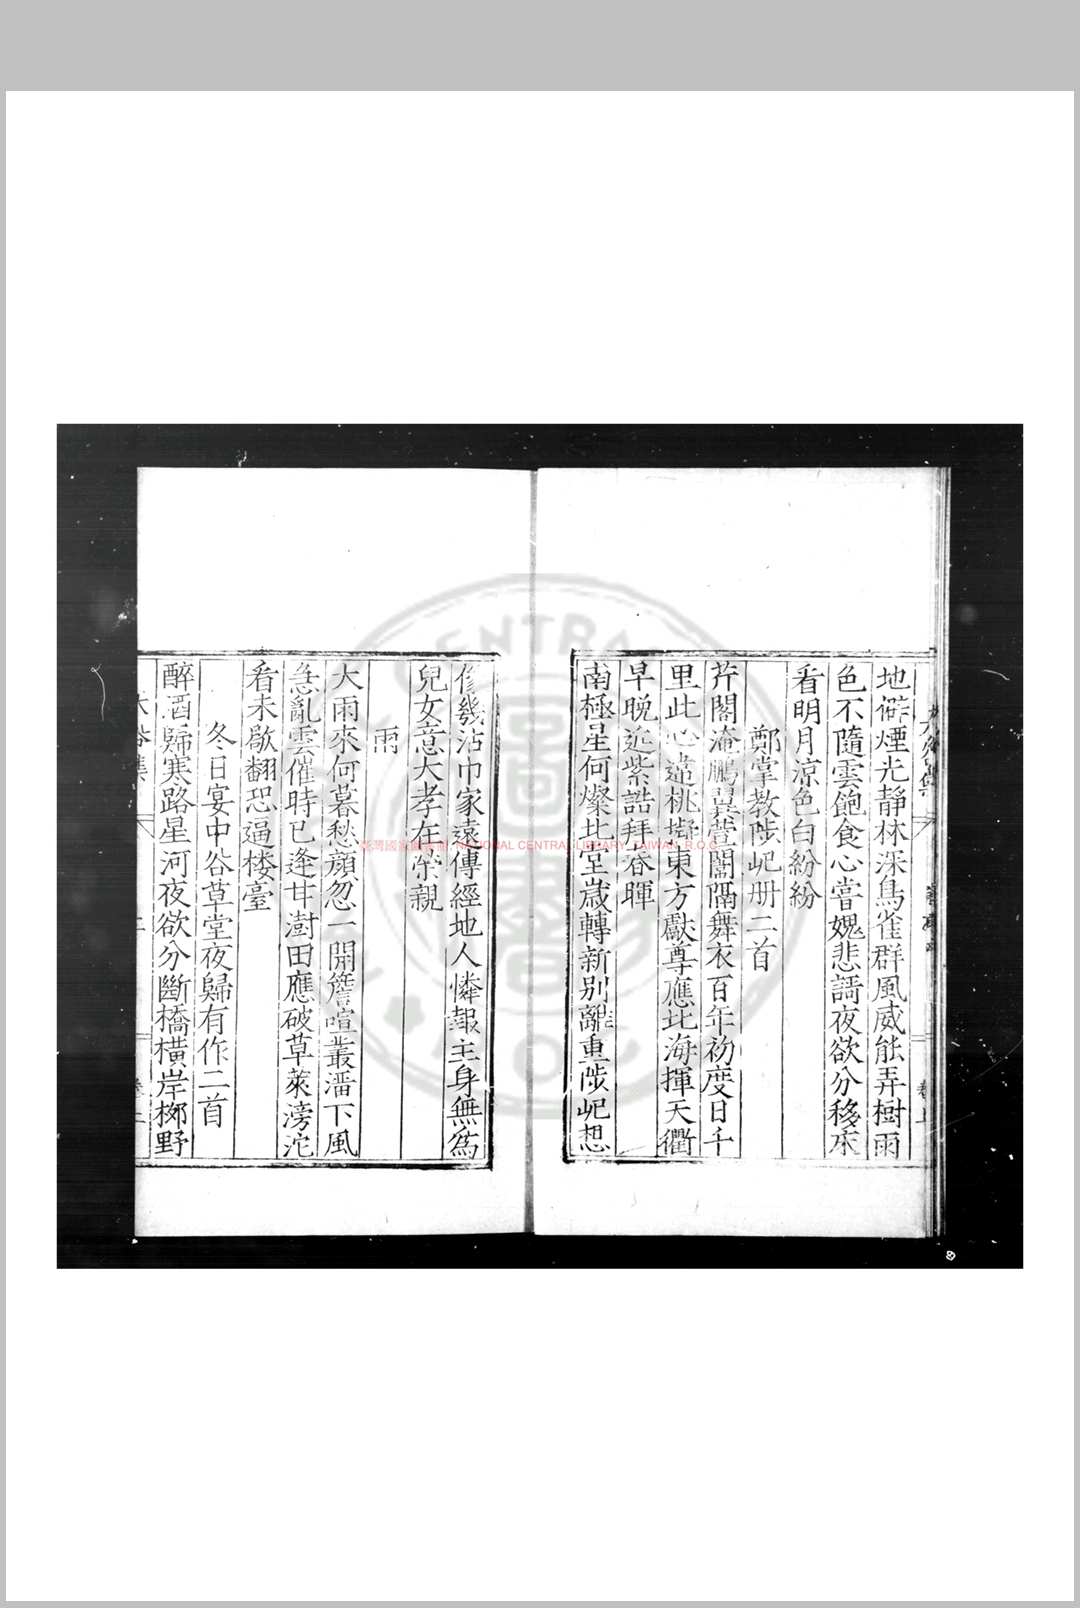 地僻煙光靜林深鳥雀群風威能弄樹雨
色不隨雲飽食心嘗媿悲謌夜欲分移來
看明月涼色白紛紛
鄭掌教陟屺册二首
芹閣淹鵬翼萱闈隔舞衣百年初度日千
里此心違桃擬東方獻尊應北海揮天衢
早晚近紫誥拜春暉
南極星何燦北堂歲轉新別離重陟屺想
幾沾巾家遠傳經地人憐報主身無爲
兒女意大孝在榮親
雨
大雨來何暮愁顏忽一開簷喧叢溜下風
急亂雲催時已逢甘澍田應破草萊滂沱
看未歇翻恐逼楼臺
冬日宴中谷草堂夜歸有作二首
醉酒歸寒路星河夜欲分斷橋橫岸柳野
臺灣國家圖書館, NATIONAL CENTRAL LIBRARY, TAIWAN, R.O.C